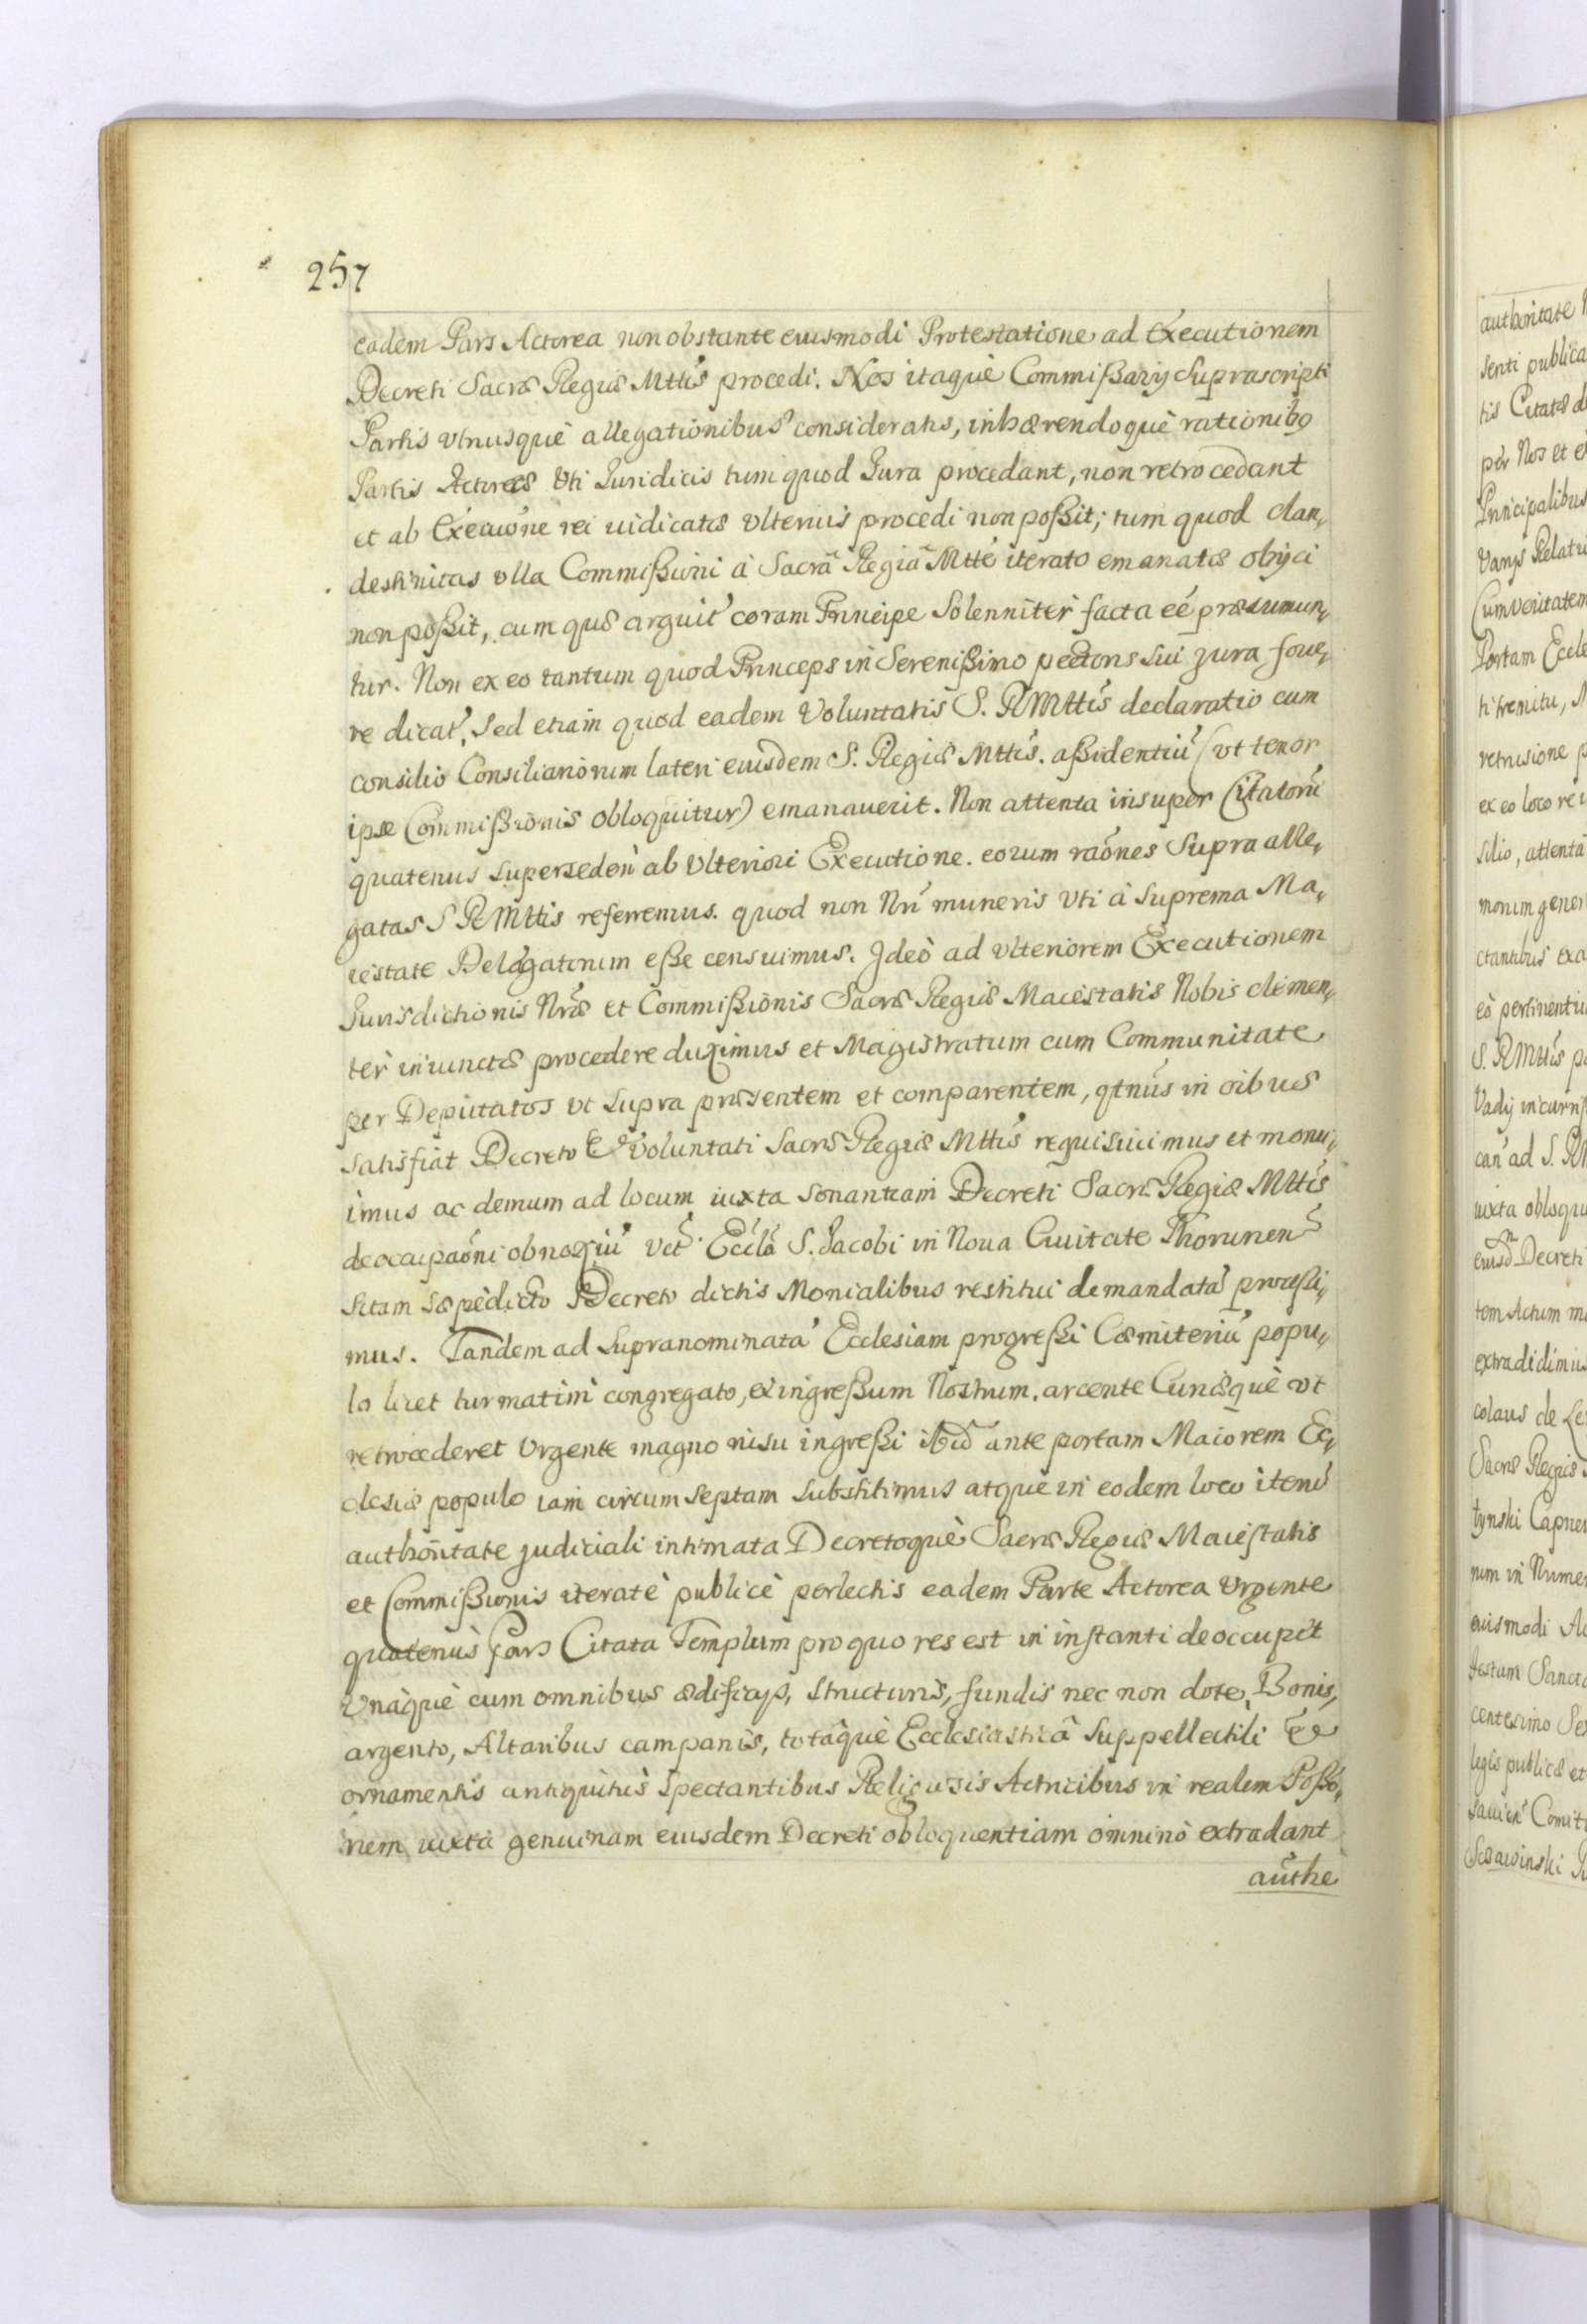 257
eadem Pars Actorea non obstante eiusmodi Protestatione ad Executionem
Decreti Sacræ Regiæ Mttis procedi. Nos itaquè Commißarij Suprascripti
Partis vtriusquè allegationibus consideratis, inhærendoquè rationibȝ
Partis Actoreæ Vti Iuridicis tum quod Iura procedant, non retrocedant
et ab Execuõne rei iudicatæ vlterius procedi non poßit; tum quod clan,
destinitas vlla Commißioni à Sacrã Regiâ Mtte iterato emanatæ obijci
non poßit, cum quæ arguit' coram Principe Solenniter facta eé præsumun,
tur. Non ex eo tantum quod Princeps in Serenißimo pectoris sui jura foue,
re dicat', Sed etiam quod eadem Voluntatis S. R Mttis declaratio cum
consilio Consiliariorum lateri eiusdem S. Regiæ Mttis. aßidentiũ (vt tenor
ipse Commißionis obloquitur) emanauerit. Non attenta insuper Citatorũ
quatenus supersederi ab Vlteriori Executione. eorum raónes Supra alle,
gatas S R Mttis referremus. quod non Nri muneris Vti à Suprema Ma,
iestate Delegatorum eße censuimus. Ideò ad vlteriorem Executionem
Jurisdictionis Nræ et Commißionis Sacræ Regiæ Maiestatis Nobis clemen,
ter iniunctæ procedere duximus et Magistratum cum Communitate
per Deputatos vt supra præsentem et comparentem, qtnús in oibus
satisfiat Decreto & Voluntati Sacræ Regiæ Mttis requisiuimus et monu,
imus ac demum ad locum iuxta sonantiam Decreti Sacræ Regiæ Mttis
deoccupaóni obnoxiũ vct. Eccla S. Jacobi in Noua Ciuitate Thorunen
sitam sæpèdicto Decreto dictis Monialibus restitui demandatã proceßi,
mus. Tandem ad supranominatã Ecclesiam progreßi Cæmiteriũ popu,
lo licet turmatim congregato, et ingreßum Nostrum, arcente Cunctisquè vt
retrocederet Vrgente magno nisu ingreßi ibid ante portam Maiorem Ec,
clesiæ populo iam circum septam substitimus atquè in eodem loco iterũ
authoritate judiciali intimata Decretoquè Sacræ Regiæ Maiestatis
et Commißionis iteratè publicè perlectis eadem Parte Actorea Vrgente
quatenùs Pars Citata Templum pro quo res est in instanti deoccupet
Vnàquè cum omnibus ædificijs, structuris, fundis nec non dote, Bonis,
argento, Altaribus campanis, totâquè Ecclesiasticâ suppellectili &
ornamentis antiquitùs spectantibus Religiosis Actricibus in realem Poßó,
nem iuxta genuinam eiusdem Decreti obloquentiam omninò extradant
authe
authoritate
senti publica
tis Citatæ
per Nos et
Principalibus
Relati
Cum veritatem
Portam Eccle
ti fremitu,
retrusione
ex eo loco rei
silio, attenta
ctantibus exa
eò pertinentiũ
S. R Mttis
Vadij incurri
ad S.
iuxta obloqu
Decreti
tem Actum
extradidimus
colaus de
Sacræ Regiæ
num in
eiusmodi
festum
centesimo
publicæ et